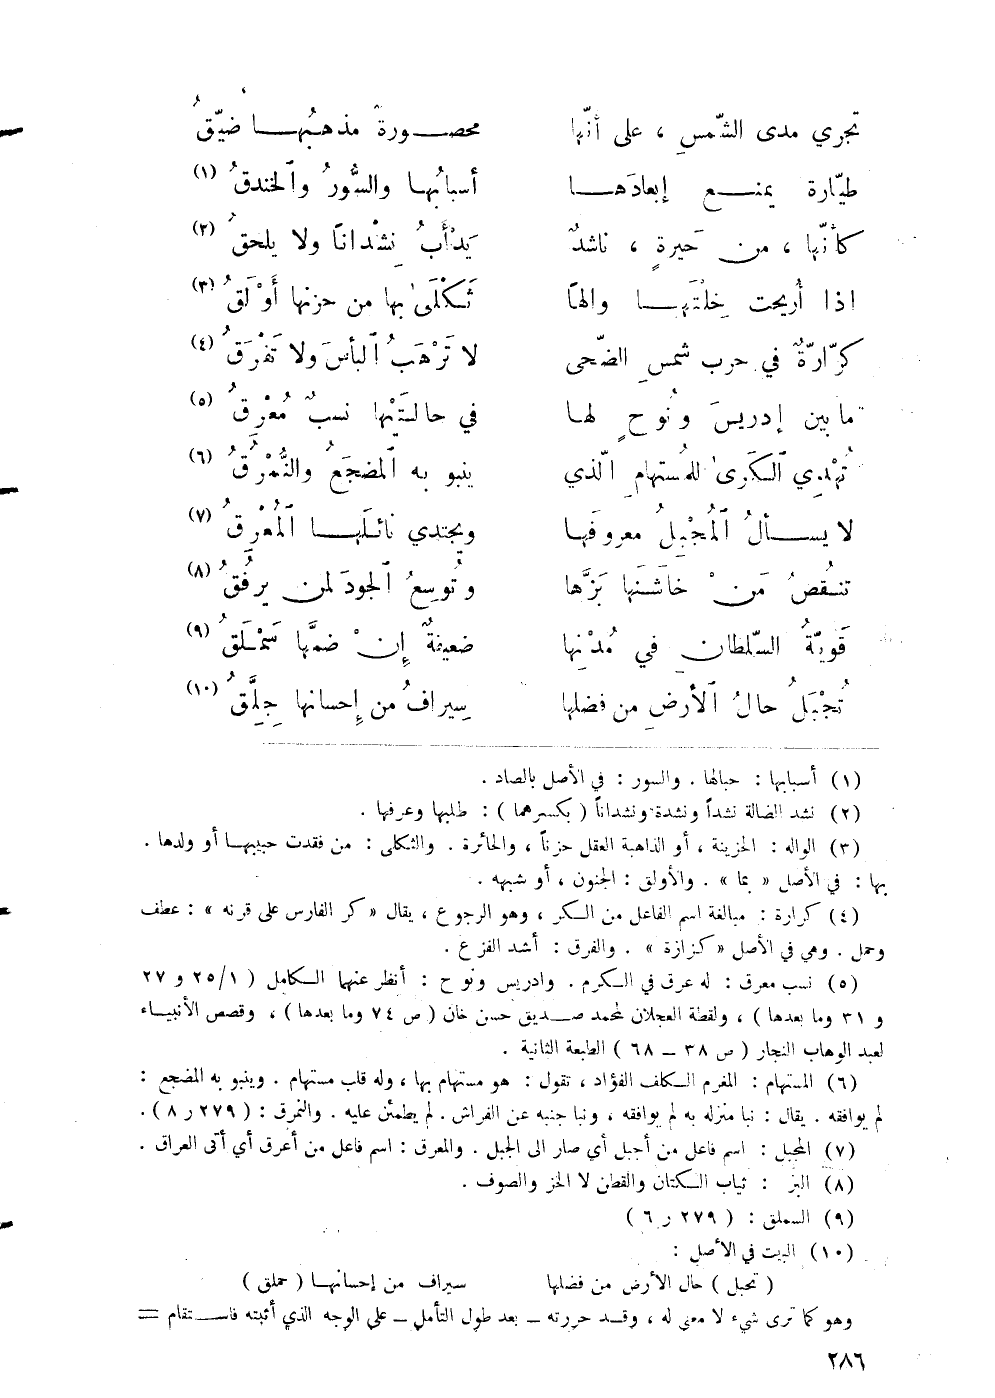 تجري مدى الشّمسِ ، على أنّها محصورة مذهبُها ضيّقُ
طيّارة يمنع إبعادَها أسبابُها والسُّورُ والخندقُ (١)
كأنّها ، من حَيرةٍ ، ناشدٌ يَدْأَبُ نِشْداناً ولا يلحقُ (٢)
اذا أُريحت خِلْتَها والهاً ثَكْلَىٰ بها من حزنها أَوْلَقُ (٣)
كرّارةٌ في حرب شمسِ الضّحى لا تَرْهَبُ البأسَ ولا تَفْرَقُ (٤)
ما بين إدريسَ ونُوحٍ لها في حالتَيْها نسبٌ مُعْرِقُ (٥)
تُهْدِي الكَرىٰ للمُستهامِ الّذي ينبو به المضجَعُ والنُّمْرُقُ (٦)
لا يسألُ المُجْبِلُ معروفَها ويجتدي نائلَها المُعْرِقُ (٧)
تنقُصُ مَنْ خاشَنَها بَزَّها وتُوسِعُ الجودَ لمن يرفُقُ (٨)
قَويّةُ السّلطان في مُدْنِها ضعيفةٌ إِنْ ضمَّها سَمْلَقُ (٩)
تُجْبَلُ حالُ الأرضِ من فضلها سِيرافُ من إِحسانها جِلَّقُ (١٠)
(١) أسبابها : حبالها . والسور : في الأصل بالصاد .
(٢) نشد الضالة نشداً ونشدة ونشداناً ( بكسرهما ) : طلبها وعرفها .
(٣) الواله : الحزينة ، أو الذاهبة العقل حزناً ، والحائرة . والثكلى : من فقدت حبيبها أو ولدها .
بها : في الأصل « بما » . والأولق : الجنون ، أو شبهه .
(٤) كرارة : مبالغة اسم الفاعل من الكر ، وهو الرجوع ، يقال « كر الفارس على قرنه » : عطف
وحمل . وهي في الأصل « كزازة » . والفرق : أشد الفزع .
(٥) نسب معرق : له عرق في الكرم . وادريس ونوح : أنظر عنهما الكامل ( ٢٥/١ و ٢٧
و ٣١ وما بعدها ) ، ولقطة العجلان لمحمد صديق حسن خان ( ص ٧٤ وما بعدها ) ، وقصص الأنبياء
لعبد الوهاب النجار ( ص ٣٨ ــ ٦٨ ) الطبعة الثانية .
(٦) المستهام : المغرم الكلف الفؤاد ، تقول : هو مستهام بها ، وله قلب مستهام . وينبو به المضجع :
لم يوافقه . يقال : نبا منزله به لم يوافقه ، ونبا جنبه عن الفراش . لم يطمئن عليه . والنمرق : ( ٢٧٩ ر ٨ ) .
(٧) المجبل : اسم فاعل من أجبل أي صار الى الجبل . والمعرق : اسم فاعل من أعرق أي أتى العراق .
(٨) البز : ثياب الكتان والقطن لا الخز والصوف .
(٩) السملق : ( ٢٧٩ ر ٦ )
(١٠) البيت في الأصل :
( تحبل ) حال الأرض من فضلها سيراف من إحسانها ( حملق )
وهو كما ترى شيء لا معنى له ، وقد حررته ــ بعد طول التأمل ــ على الوجه الذي أثبته فاستقام =
٢٨٦